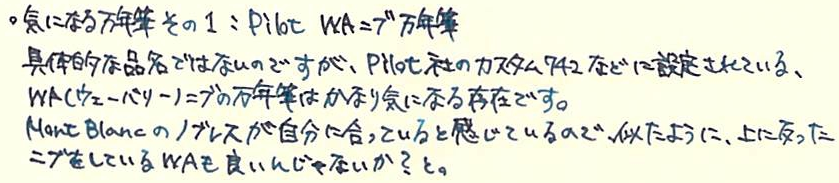 。気になる万年筆その1：Pilot WAニブ万年筆
具体的な品名ではないのですが、Pilot社のカスタム742などに設定されている、
WA(ウェーバリー)ニブの万年筆はかなり気になる存在です。
Mont Blancのノブレスが自分に合っていると感じているので、似たように、上に反った
ニブをしているWAも良いんじゃないか？と。